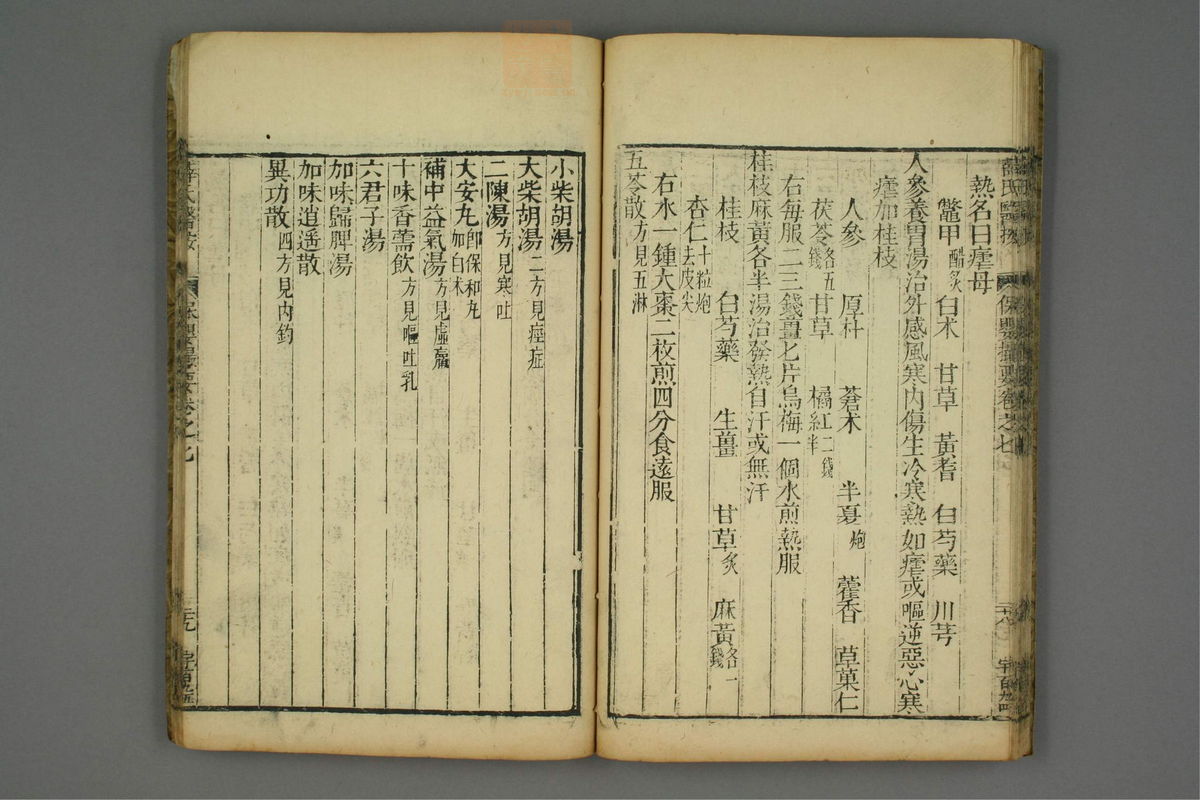 熱名曰瘧母
鱉甲醋炙 白术 甘草 黃耆 白芍藥 川芎
人參養胃湯治外感風寒内傷生冷寒熱如瘧或嘔逆惡心寒
瘧加桂枝
人參 厚朴 蒼术 半夏炮 藿香 草菓仁
茯苓各五錢 甘草 橘紅二錢半
右每服二三錢薑七片烏梅一個水煎熱服
桂枝麻黃各半湯治發熱自汗或無汗
桂枝 白芍藥 生薑 甘草炙 麻黃各一錢
杏仁十粒炮去皮尖
右水一鍾大棗二枚煎四分食遠服
五苓散方見五淋
小柴胡湯
大柴胡湯二方見痙症
二陳湯方見寒吐
大安丸卽保和丸加白术
補中益氣湯方見虛羸
十味香薷飲方見嘔吐乳
六君子湯
加味歸脾湯
加味逍遥散
異功散四方見内釣
薛氏醫按 保嬰撮要卷之七